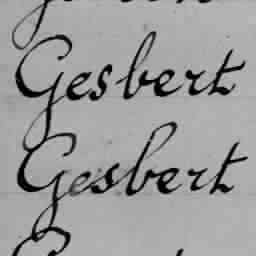 Gesbert
Gesbert